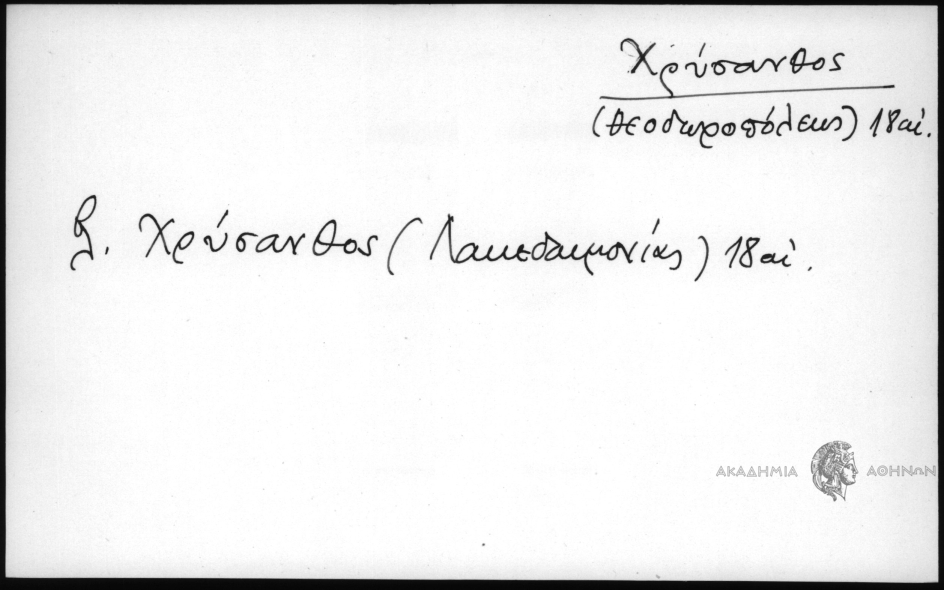 Χρύσανθος
(Θεοδωροπόλεως) 18 αἰ.
βλ. Χρύσανθος (Λακεδαιμονίας) 18 αἰ.
ΑΚΑΔΗΜΙΑ ΑΘΗΝΩΝ